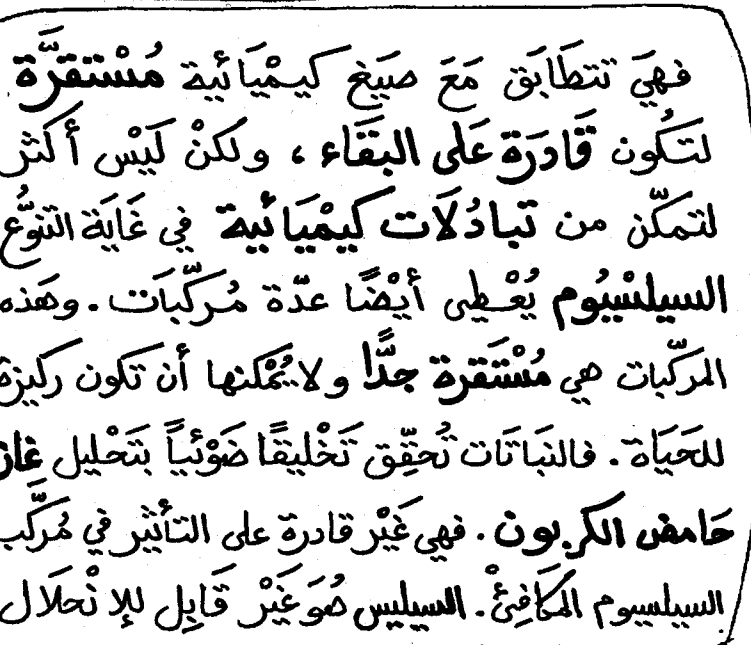 فهيَ تتطَابَق مَعَ صِيَغ كيـمْيَائية مُسْتقرَّة
لتَكُون قَادرَة عَلى البَقَاء، ولكنْ لَيْس أكثر
لتمكّن من تبادُلَات كيمْيَائية في غَايَة التنوُّع
السيلسْيُوم يُعْـطِى أيْضًا عدّة مُـركّبَات. وهَذه
المركّبات هي مُسْتَقرة جدًّا ولا يُمْكنها أن تكون ركيزة
للحَيَاة. فالنبَاتَات تُحقِّق تَخْليقًا ضَوْئياً بتَحْليل غاز
حَامض الكربون. فهي غَيْر قادرة على التأثير في مُركَّب
السيلسيوم المكَافِئْ. السيليس هُوَ غَيْر قَابِل للإنْحلَال